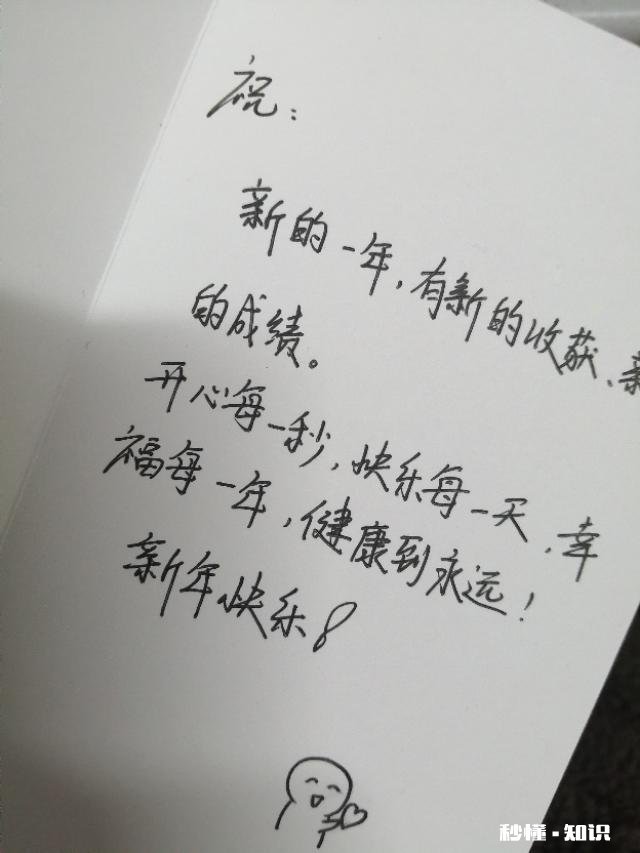 祝：
新的一年，有新的收获、新
的成绩。
开心每一秒，快乐每一天，幸
福每一年，健康到永远！
新年快乐！
秒懂-知识